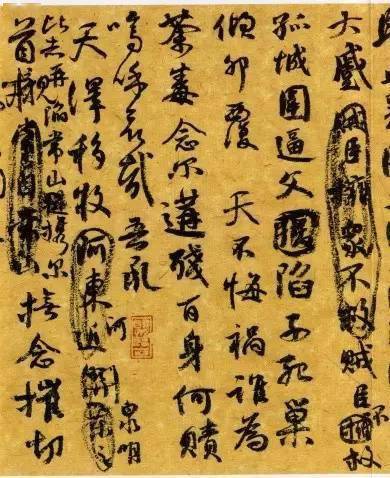 大蹙賊臣擁衆不救賊臣不救
孤城圍逼父陷子死巢
傾卵覆天不悔禍誰為
荼毒念爾遘殘百身何贖
嗚呼哀哉吾承
天澤移牧河東近河關泉明
比者再陷常山攜爾
首櫬亦自常山
撫念摧切